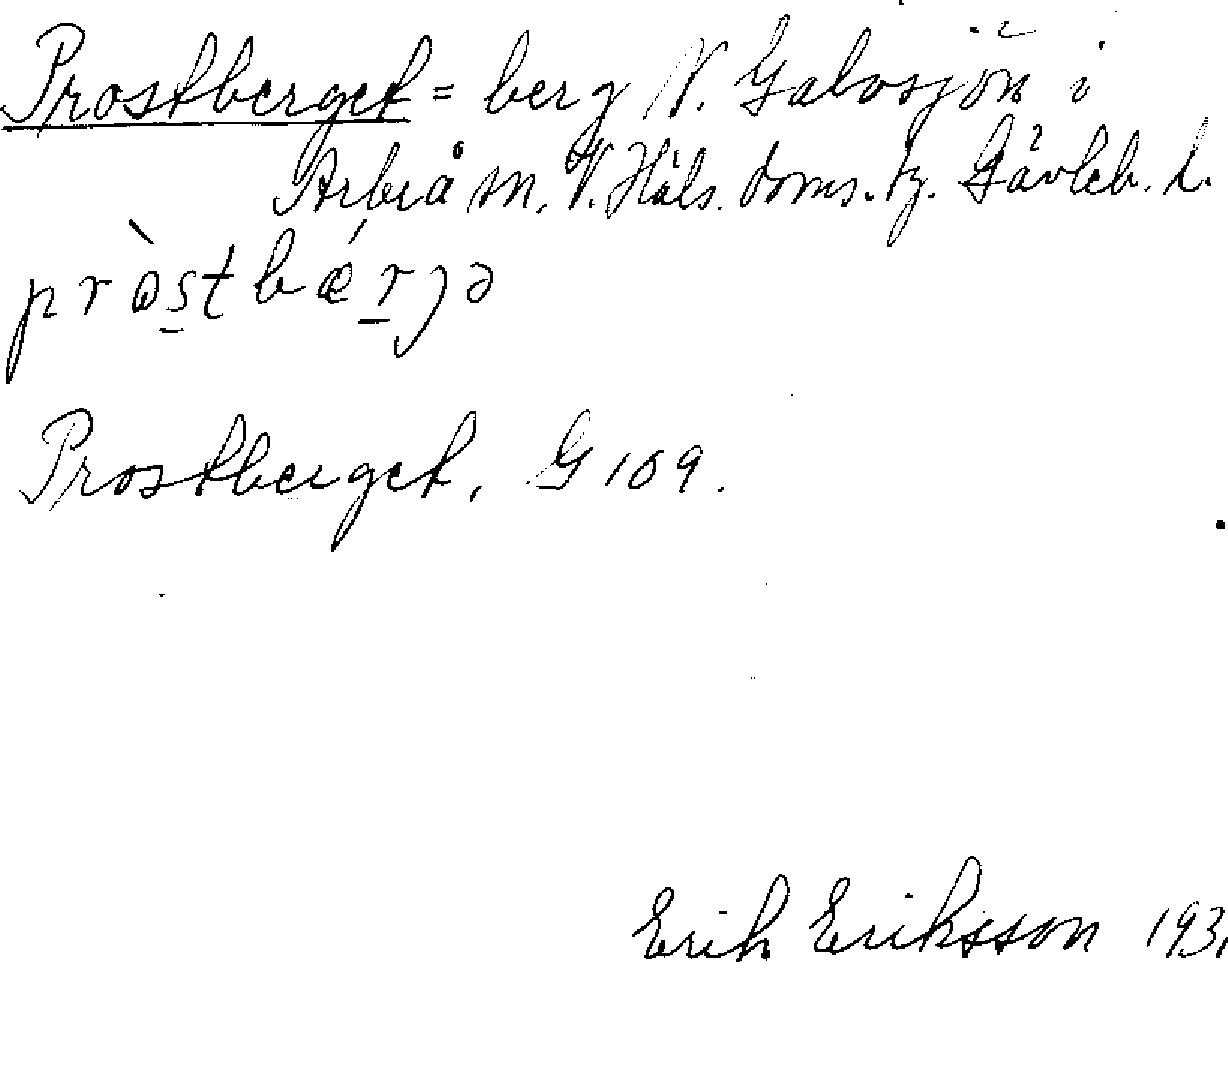 Prostberget = berg N. Galvsjön i
Arbrå sn. V. Häls. doms. tg. Gävleb. l.
pròstbǽrjə
Prostberget, G 109.
Erik Eriksson 193